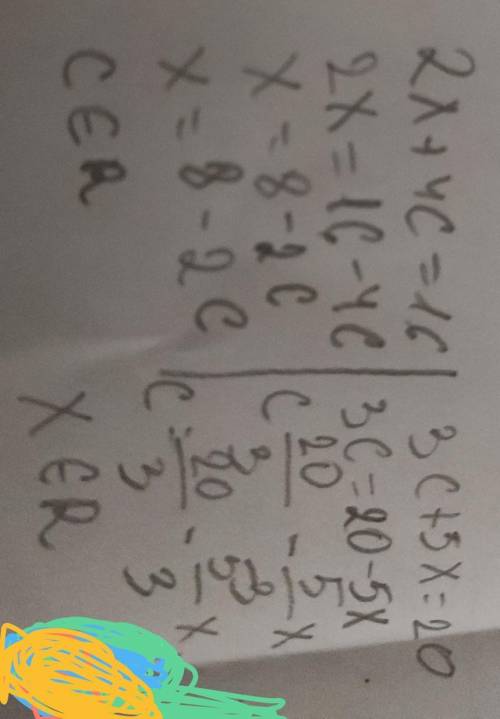 2x + 4c = 1c
2x = 1c - 4c
x = 8 - 2c
x = 8 - 2c
c ∈ R
3c + 5x = 20
3c = 20 - 5x
c 20/3 - 5/3 x
c = 20/3 - 5/3 x
x ∈ R